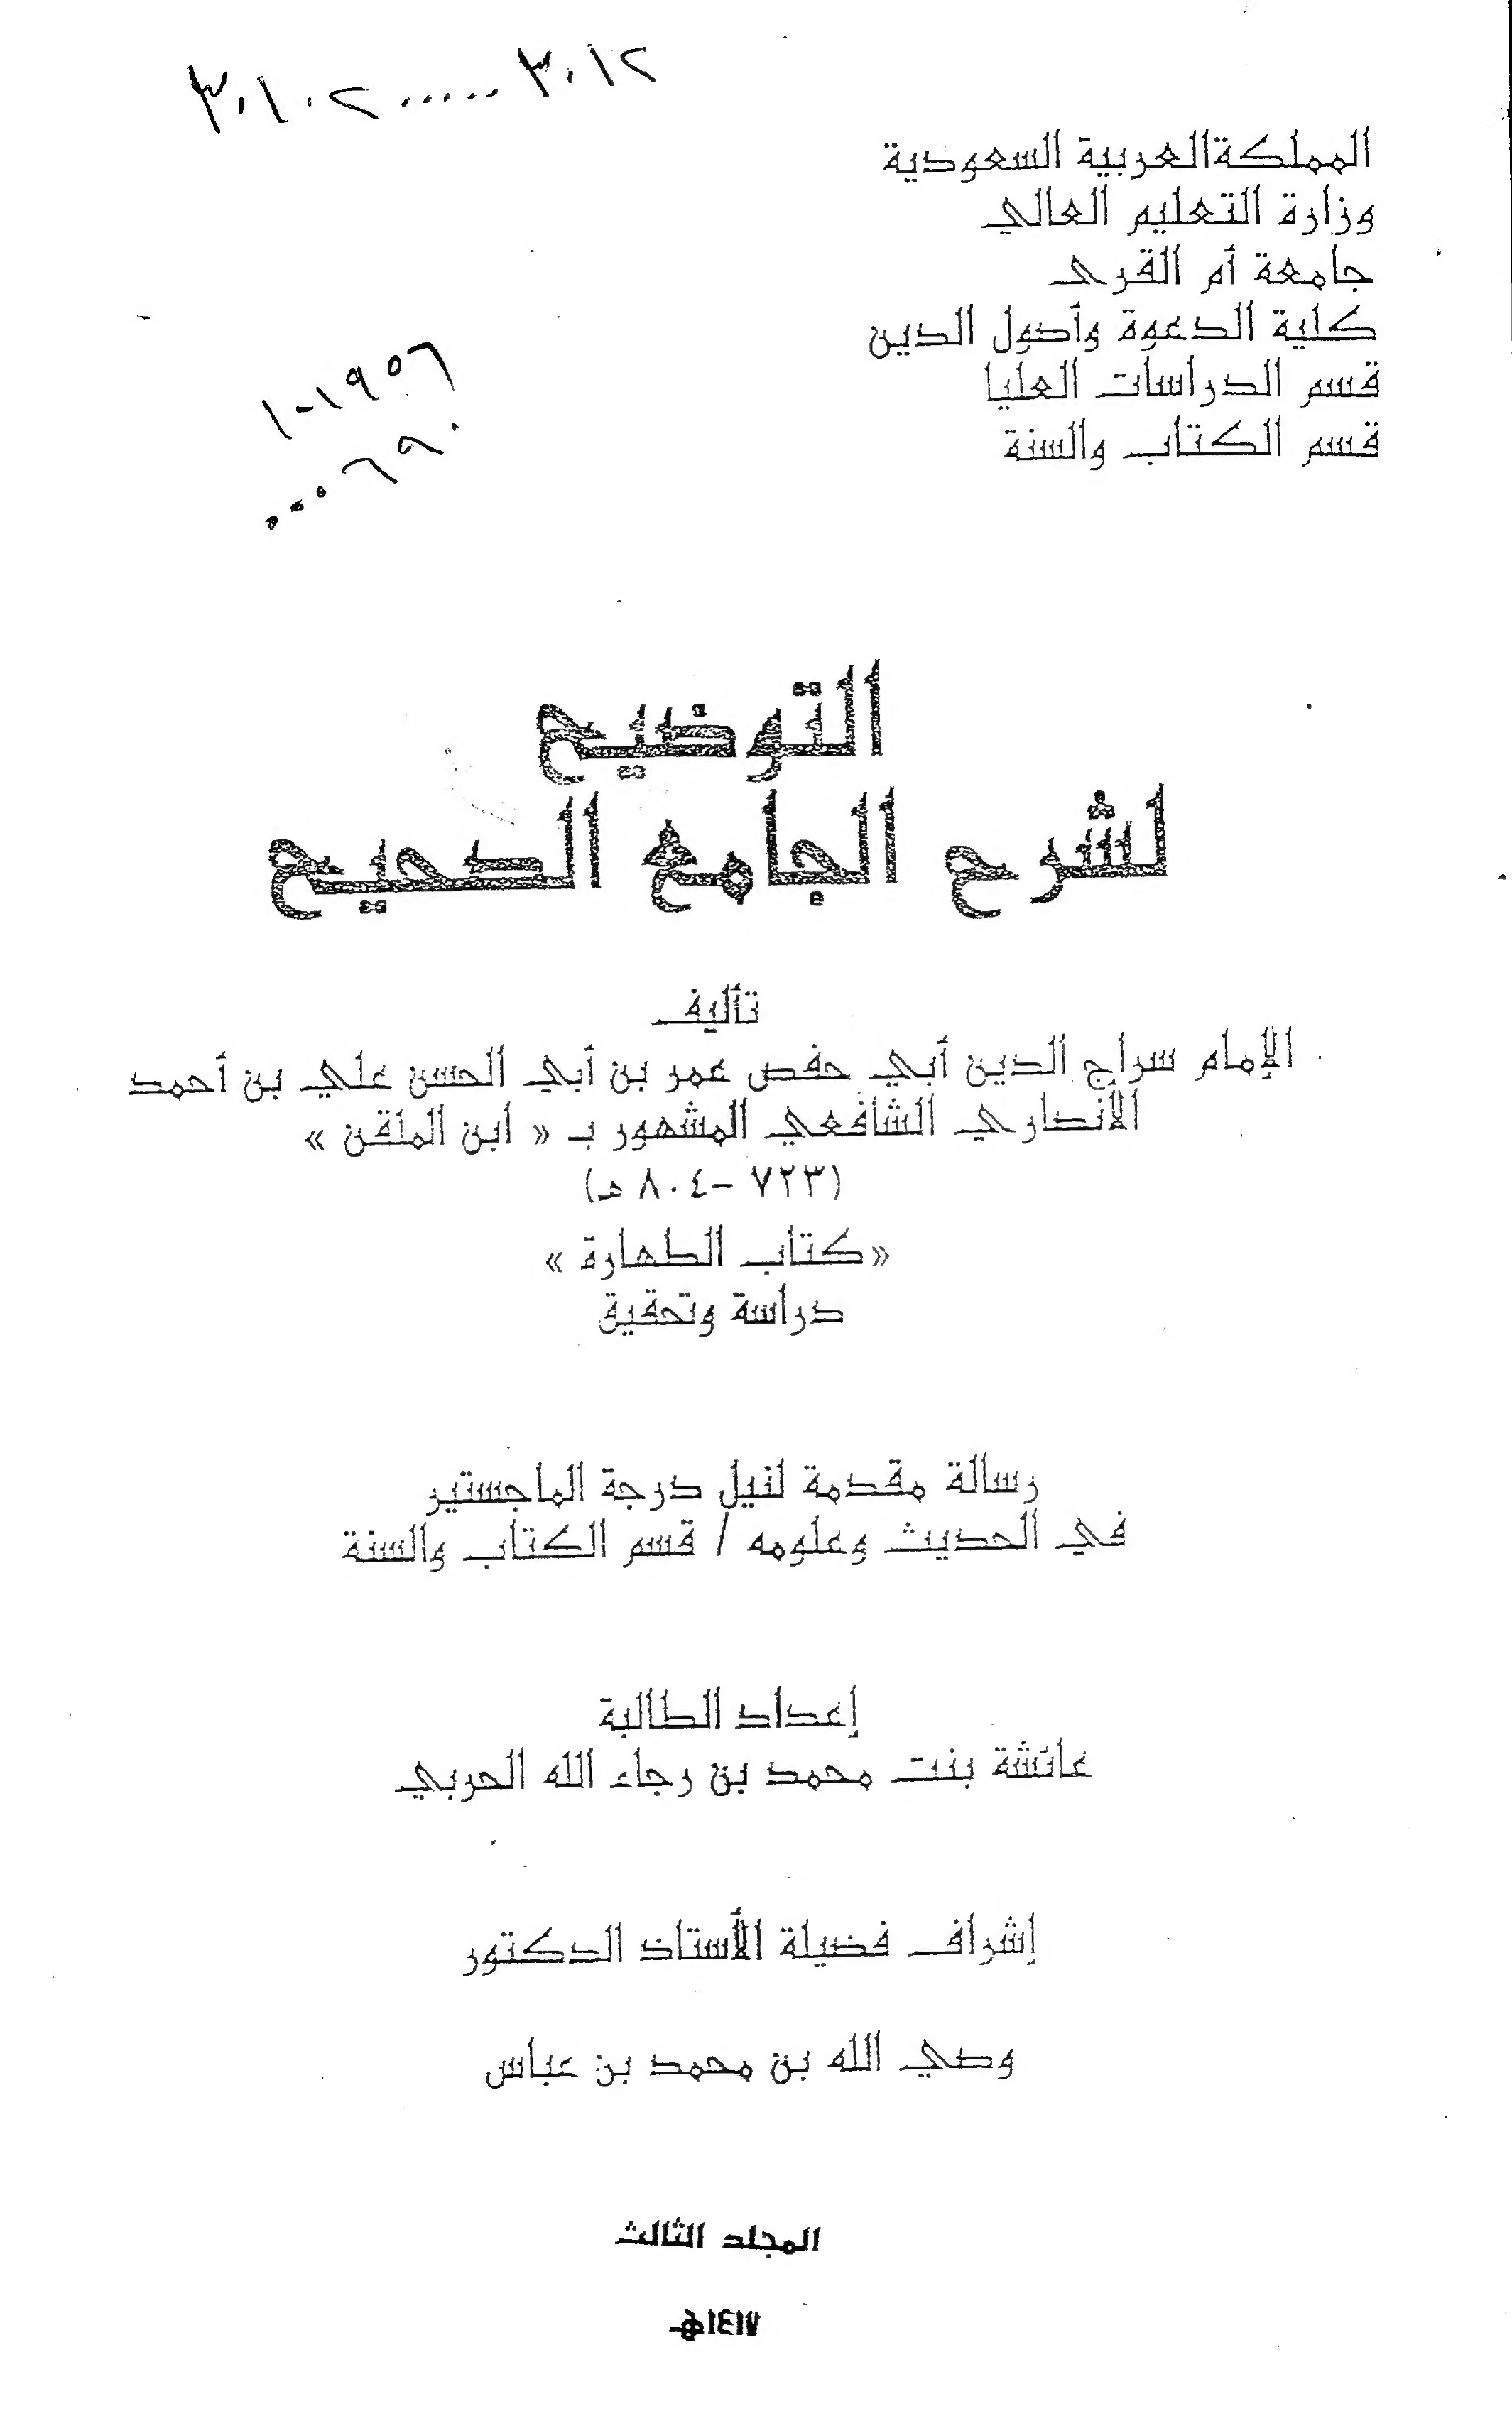 ٣٠١٠٢٠٠٠٠٠٣٠١٢
المملكة العربية السعودية
وزارة التعليم العالي
جامعة أم القرى
كلية الدعوة وأصول الدين
قسم الدراسات العليا
قسم الكتاب والسنة
١-١٩٥٦
٠٠٠٦٩٠
التوضيح
لشرح الجامع الصحيح
تأليف
الإمام سراج الدين أبي حفص عمر بن أبي الحسن علي بن أحمد
الأنصاري الشافعي المشهور بـ « ابن الملقن »
(٧٢٣ -٨٠٤ هـ)
«كتاب الطهارة »
دراسة وتحقيق
رسالة مقدمة لنيل درجة الماجستير
في الحديث وعلومه / قسم الكتاب والسنة
إعداد الطالبة
عائشة بنت محمد بن رجاء الله الحربي
إشراف فضيلة الأستاذ الدكتور
وصي الله بن محمد بن عباس
المجلد الثالث
١٤١٧هـ